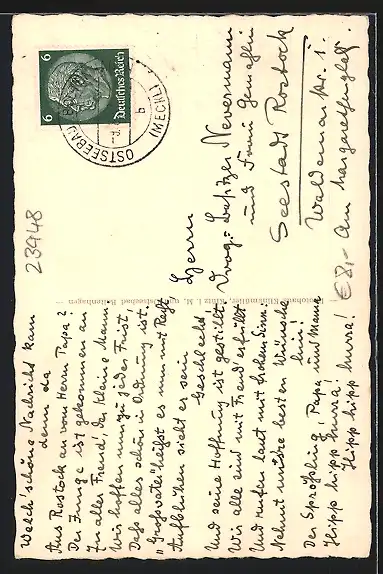 Welch' schöne Nachricht kam
denn da
Aus Rostock an vom Herrn Papa?
Der Junge ist gekommen an
Zu aller Freud', der kleine Mann.
Wir hoffen nun zu jeder Frist,
Daß alles schön in Ordnung ist.
„Großvater" heißt es nun mit Recht
Aufblühen sieht es sein
Geschlecht
Und seine Hoffnung ist gestillt.
Wir alle sind mit Freud erfüllt
Und rufen laut mit frohem Sinn:
Nehmt unsere besten Wünsche
hin!
Der Sprößling, Papa und Mama
Hipp hipp hurra!
Hipp hipp hurra!
Deutsches Reich
6 6
OSTSEEBAD
(MECKL)
b
Herrn
Drog.-Besitzer Nevermann
und Frau Gemahlin
Seestadt Rostock
Waldemarstr. 1.
Am Margarethenplatz
23948
€ 8,-